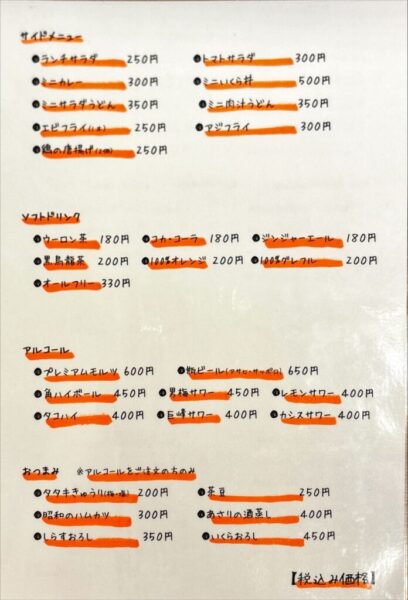 サイドメニュー
●ランチサラダ 250円 ●トマトサラダ 300円
●ミニカレー 300円 ●ミニいくら丼 500円
●ミニサラダうどん 350円 ●ミニ肉汁うどん 350円
●エビフライ(1本) 250円 ●アジフライ 300円
●鶏の唐揚げ(2個) 250円
ソフトドリンク
●ウーロン茶 180円 ●コカ・コーラ 180円 ●ジンジャーエール 180円
●黒烏龍茶 200円 ●100%オレンジ 200円 ●100%グレフル 200円
●オールフリー 330円
アルコール
●プレミアムモルツ 600円 ●瓶ビール(アサヒ・サッポロ) 650円
●角ハイボール 450円 ●男梅サワー 450円 ●レモンサワー 400円
●タコハイ 400円 ●巨峰サワー 400円 ●カシスサワー 400円
おつまみ ※アルコールをご注文の方のみ
●タタキきゅうり(梅・塩) 200円 ●茶豆 250円
●昭和のハムカツ 300円 ●あさりの酒蒸し 400円
●しらすおろし 350円 ●いくらおろし 450円
【税込み価格】